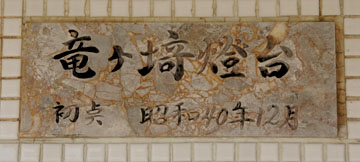 竜ヶ埼燈台
初点 昭和40年12月